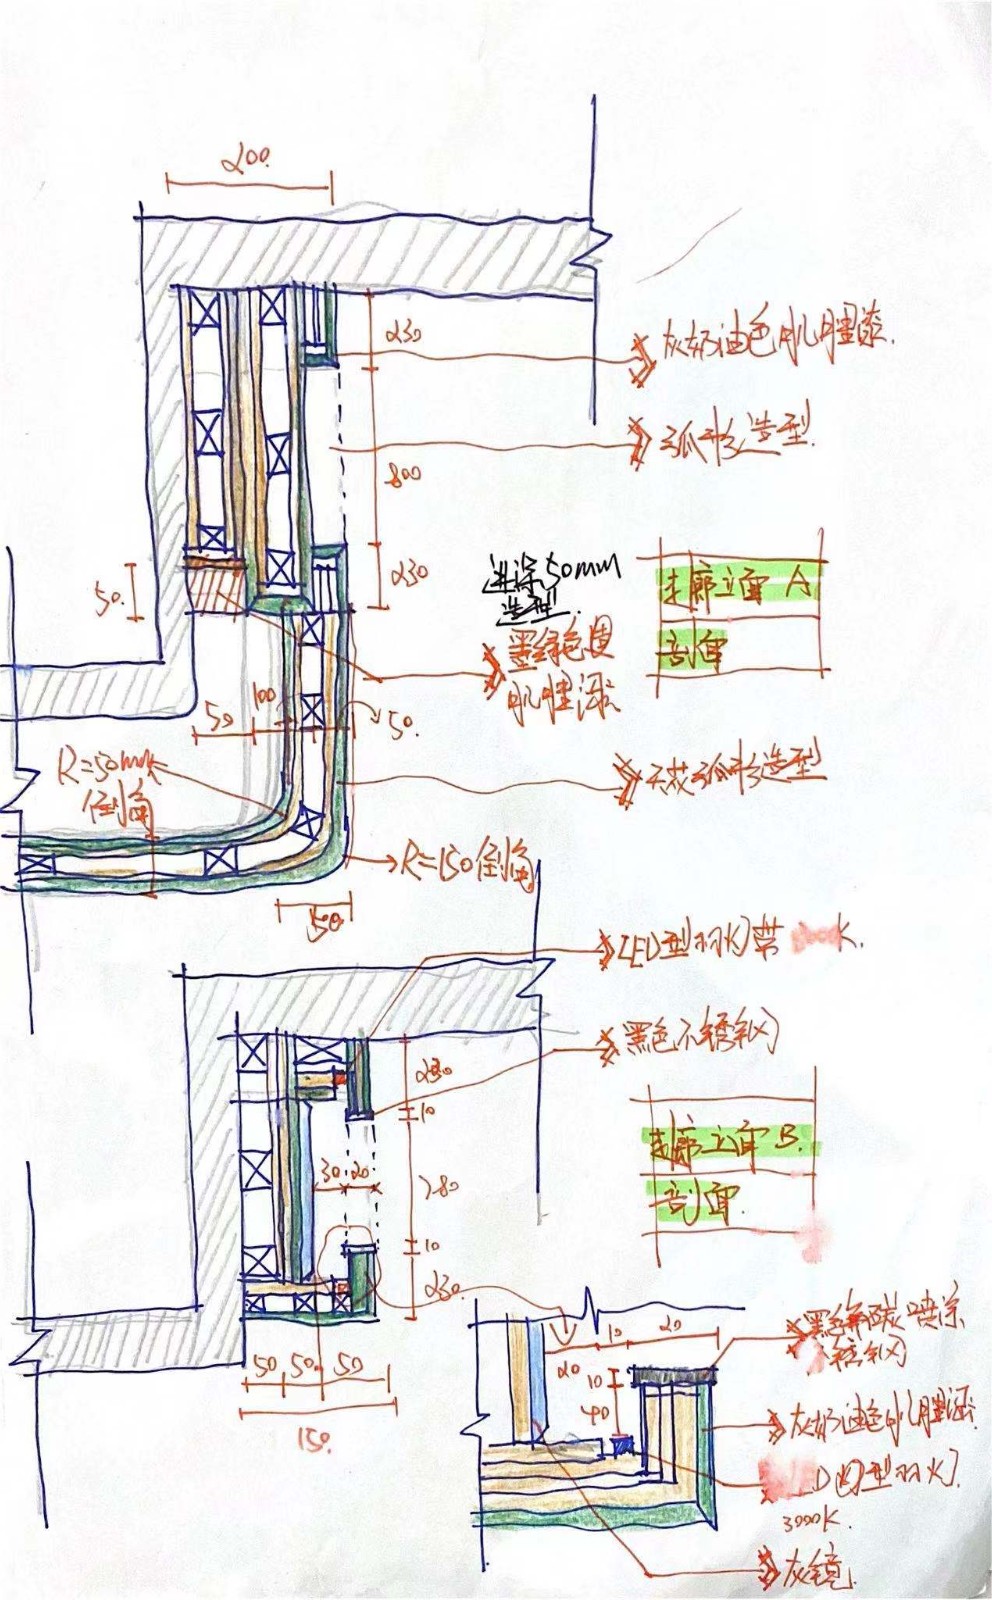 200.
230
灰奶油色肌腊漆.
弧形造型.
800
230
50.
进深50mm
造型.
走廊立面 A
剖面
墨绿色
肌腊漆
50
100
50.
R=50mm
倒角
天花弧形造型
R=150倒角
150
LED型灯带 K.
黑色不锈钢
230
10
30 20
780
走廊立面 B.
剖面.
10
230.
50 50. 50
150.
10 20
20
10
40
黑色 碳喷涂
锈钢
灰奶油色肌腊漆.
D 型灯.
3000K.
灰镜.